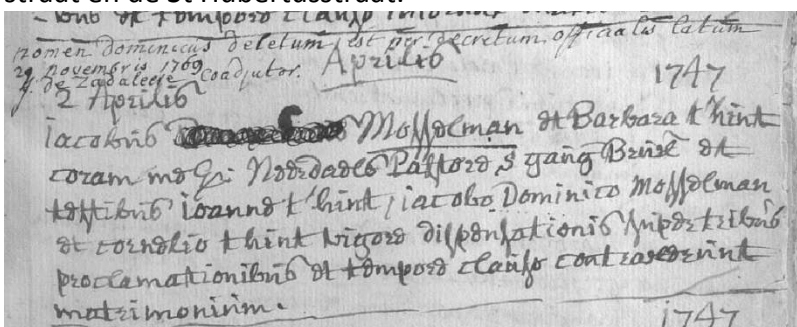 straat en de St Hubertusstraat.
et tempore clauso
nomen dominicus deletum est per decretum officialis latum
29 novembris 1769
J. de Zadeleere Coadjutor.
Aprilis
1747
2 Aprilis
iacobus Mosselman et Barbara t'hint
coram me Noordaels Pastore S gang Brux et
testibus ioanne t'hint / iacobo Dominico Mosselman
et cornelio thint vigore dispensationis super tribus
proclamationibus et tempore clauso contraxerunt
matrimonium.
1747